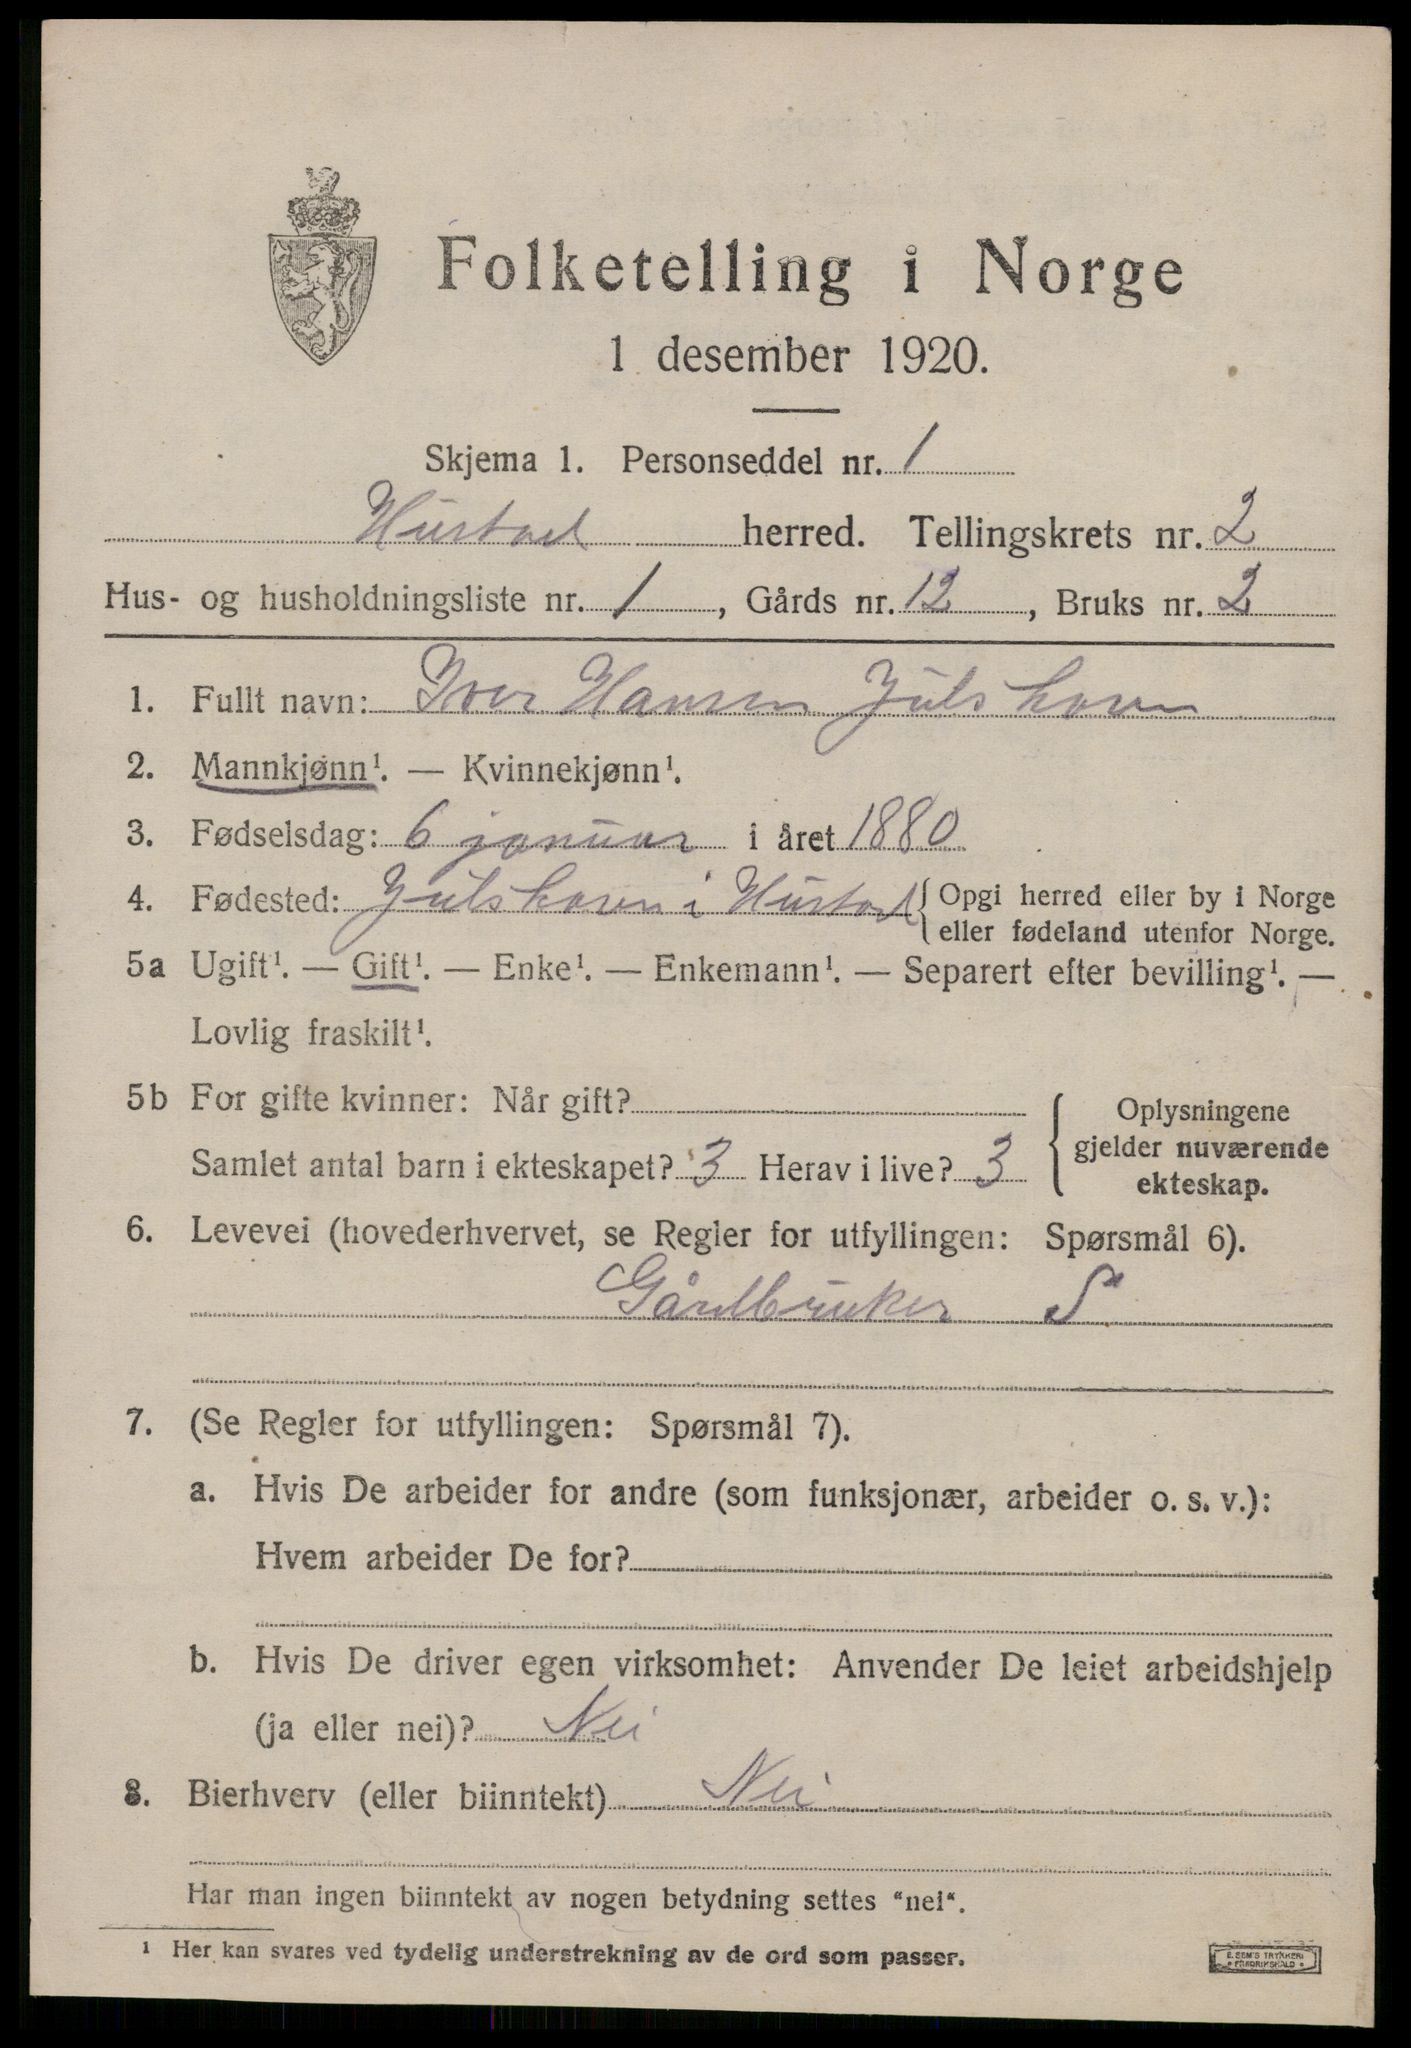 Folketelling i Norge
1 desember 1920.
Skjema 1. Personseddel nr. 1
Hustad herred. Tellingskrets nr. 2
Hus- og husholdningsliste nr. 1, Gårds nr. 12, Bruks nr. 2
1. Fullt navn: Iver Hansen Julshavn
2. Mannkjønn¹. — Kvinnekjønn¹.
3. Fødselsdag: 6 januar i året 1880
4. Fødested: Julshavn i Hustad { Opgi herred eller by i Norge
eller fødeland utenfor Norge.
5a Ugift¹. — Gift¹. — Enke¹. — Enkemann¹. — Separert efter bevilling¹. —
Lovlig fraskilt¹.
5b For gifte kvinner: Når gift?
Samlet antal barn i ekteskapet? 3 Herav i live? 3
{ Oplysningene
gjelder nuværende
ekteskap.
6. Levevei (hovederhvervet, se Regler for utfyllingen: Spørsmål 6).
Gårdbruker S
7. (Se Regler for utfyllingen: Spørsmål 7).
a. Hvis De arbeider for andre (som funksjonær, arbeider o. s. v.):
Hvem arbeider De for?
b. Hvis De driver egen virksomhet: Anvender De leiet arbeidshjelp
(ja eller nei)? Nei
8. Bierhverv (eller biinntekt) Nei
Har man ingen biinntekt av nogen betydning settes "nei".
¹ Her kan svares ved tydelig understrekning av de ord som passer.
E. SEM'S TRYKKERI
• FREDRIKSHALD •